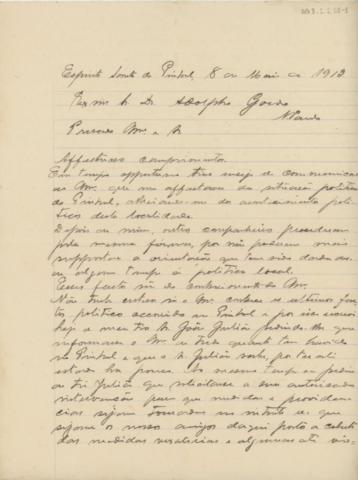 Espirito Santo do Pinhal, 8 de Maio de 1913
Exmo Sr. Dr. Adolpho Gordo
S. Paulo
Prezado Amo e Sr
Affectuosos cumprimentos.
Em tempo opportuno tive ensejo de communicar
ao Amo. que me affastava da situação politica
de Pinhal, abstendo-me do
tico desta localidade.
Depois de mim, outros companheiros procederam
pela mesma fórma, por não poderem mais
supportar a orientação que tem sido dada de
algum tempo á politica local.
Esses factos são do conhecimento do Amo.
Não tendo o Amo. os ultimos fac
tos politicos occorridos em Pinhal e por isso escrevi
hoje a meu tio Sr. João Julião pedindo-lhe que
informasse o Amo. de tudo quanto tem havido
no Pinhal e que o Sr. Julião sabe, por ter ali
estado ha pouco. Ao mesmo tempo eu pedia
ao tio Julião que solicitasse a sua autorisada
intervenção para que medidas e providen
cias sejam tomadas no intuito de que
sejam os nossos amigos daqui postos a coberto
das medidas e algumas até